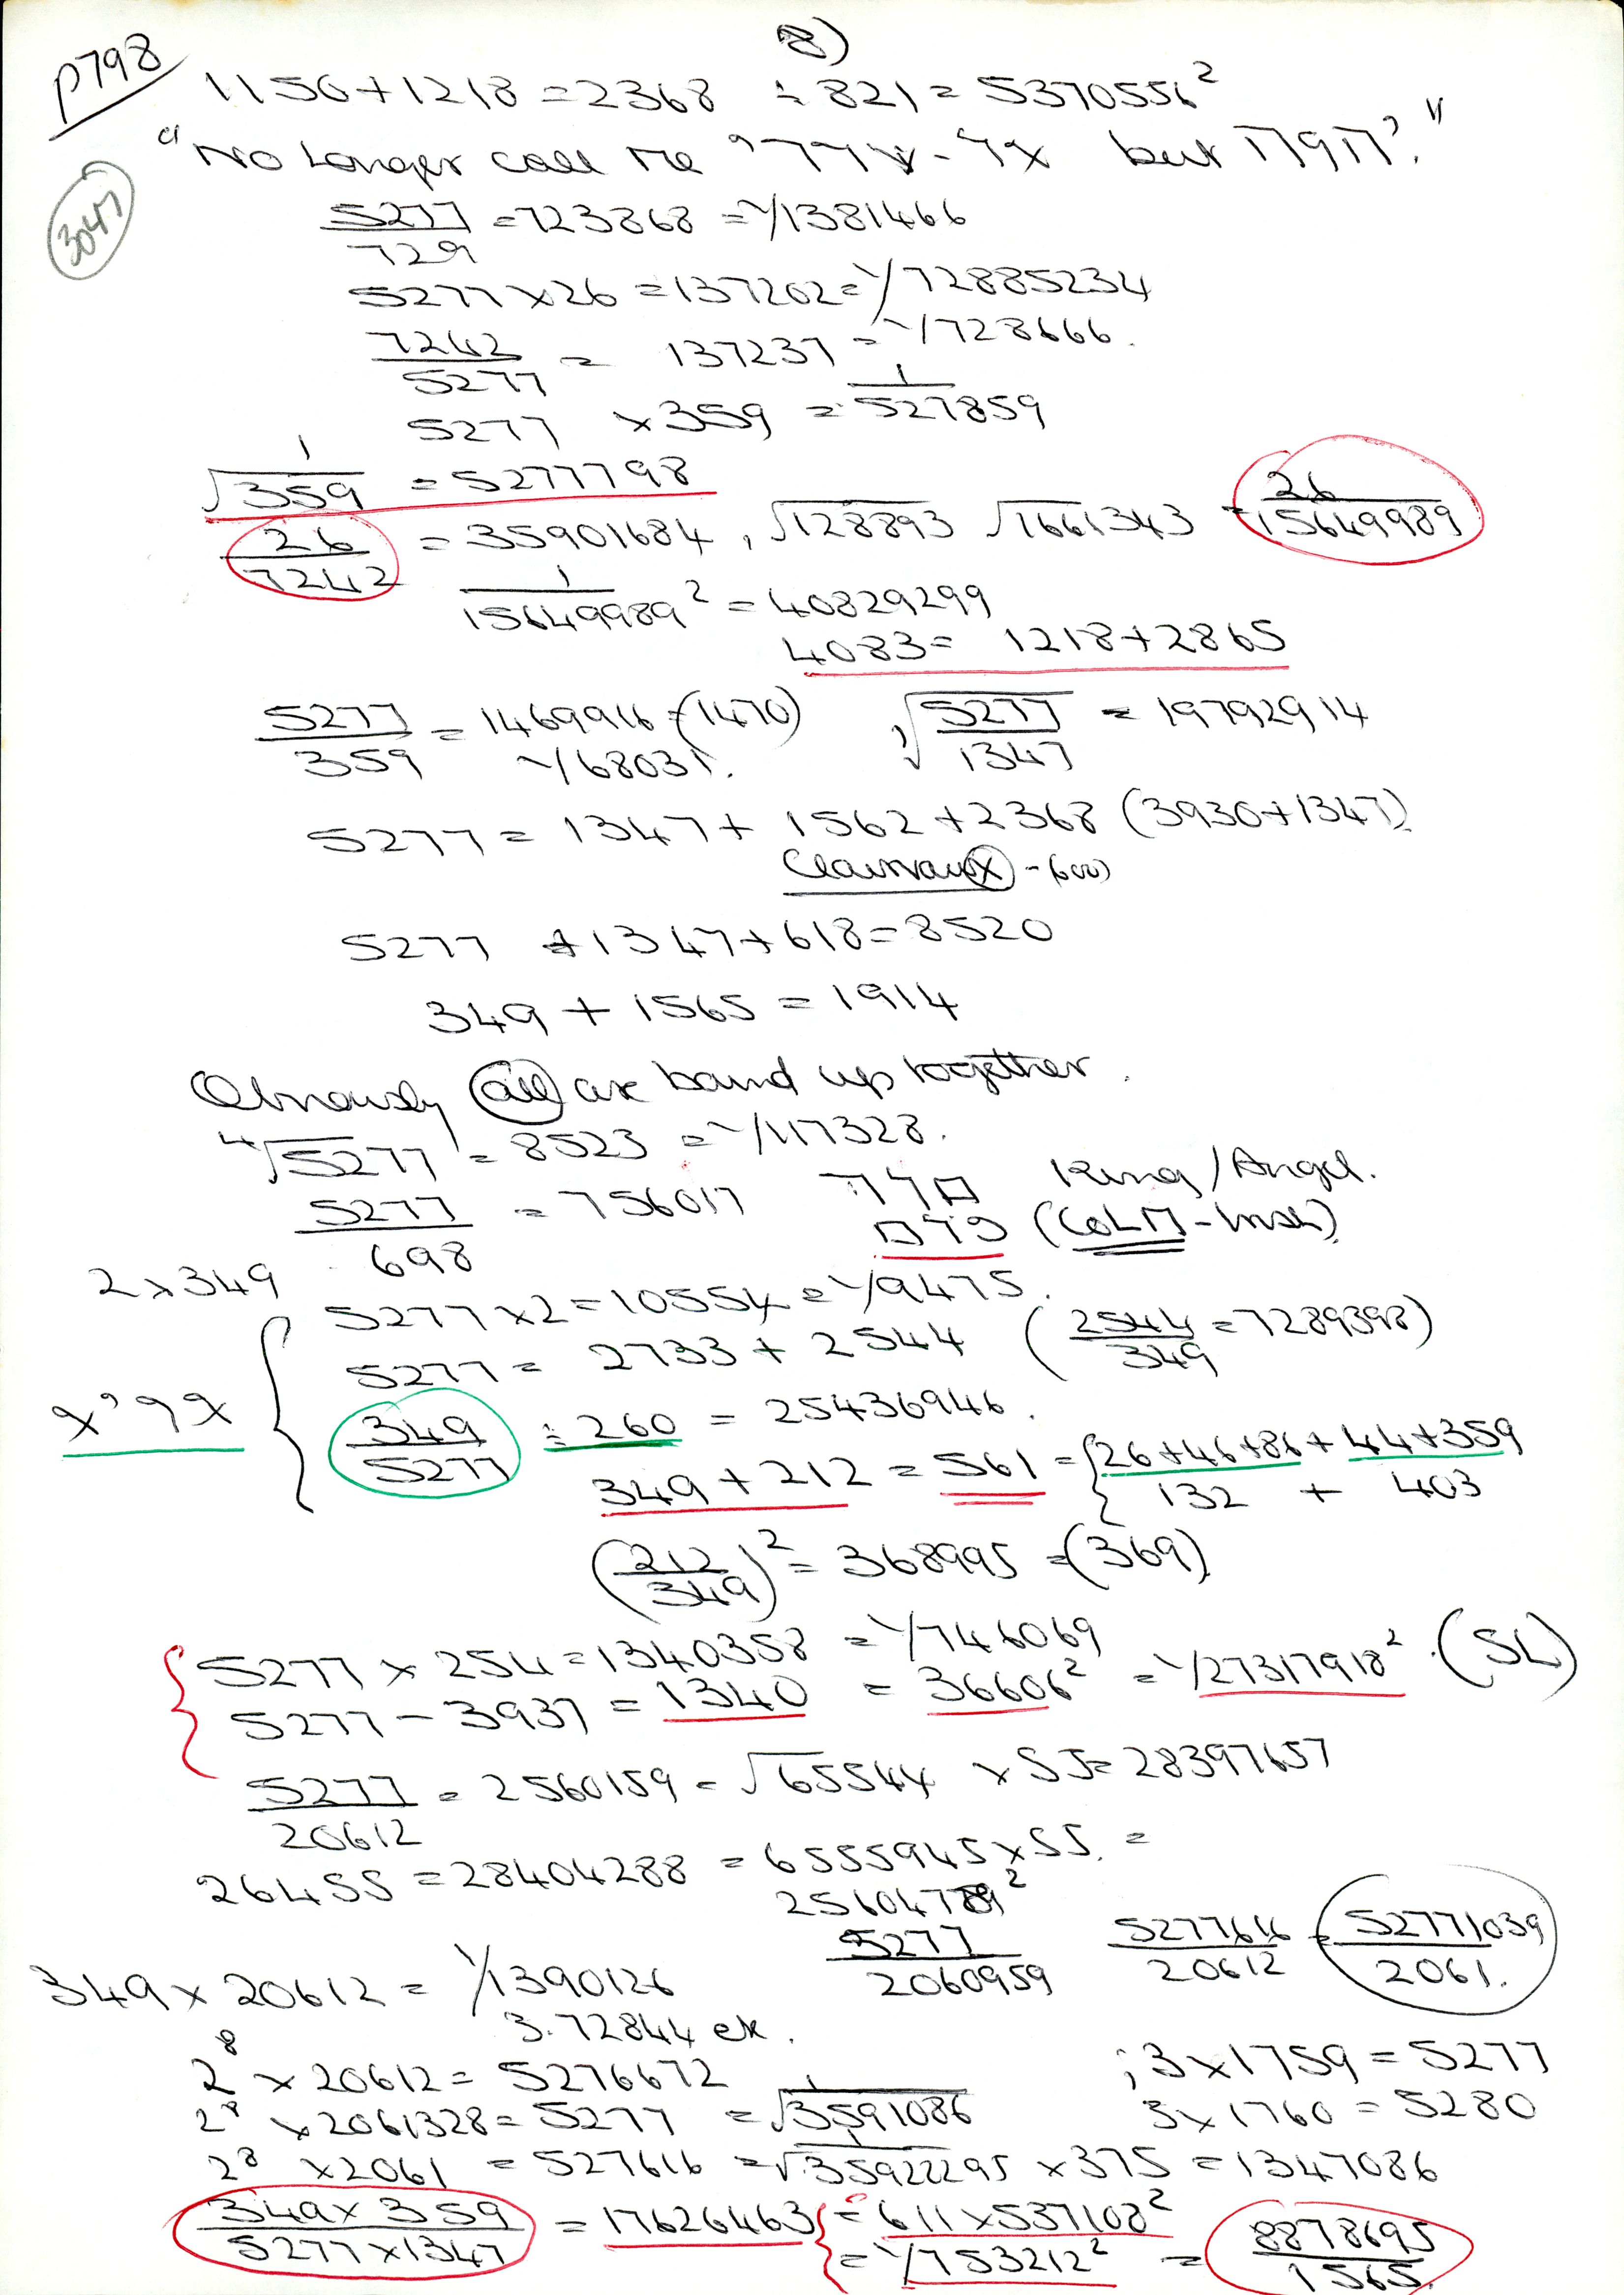 8)
p798
1150+1218=2368 ÷ 821 = 5370556²
"No Longer call me
3047
5277/729 = 723868 = 1/1381466
5277×26 = 137202 = 1/72885234
7242/5277 = 137237 = 1/728666.
5277 ×359 = 1/527859
1/√359 = 5277798
26/7242 = 35901684, √128893 √1661343 = 26/15649989
1/15649989² = 40829299
4083 = 1218+2865
5277/359 = 1469916 = (1470) √5277/1347 = 19792914
1/68031.
5277 = 1347 + 1562 + 2368 (3930+1347).
Clairvaux - (600)
5277 +1347+618 = 8520
349 + 1565 = 1914
Obviously all are bound up together.
4√5277 = 8523 = 1/117328.
5277/698 = 756017 King/Angel.
2×349
5277×2 = 10554 = 1/9475.
5277 = 2733 + 2544 (2544/349 = 7289398)
349/5277 ÷ 260 = 25436946.
349 + 212 = 561 = {26+46+86+44+359
132 + 403
(212/349)² = 368995 = (369)
5277 × 254 = 1340358 = 1/746069
5277 - 3937 = 1340 = 36606² = 1/27317918². (SL)
5277/20612 = 2560159 = √65544 × SS = 28397657
264SS = 28404288 = 6555945×SS. =
25604789²
5277/2060959 5277616/20612 = 52771039/2061.
349 × 20612 = 1/1390126
3.72844 ek.
2⁸ × 20612 = 5276672 ; 3×1759 = 5277
2⁸ ×2061328 = 5277 = 1/√3591086 3×1760 = 5280
2⁸ ×2061 = 527616 = 1/√35922295 ×375 = 1347086
349×359/5277×1347 = 17626463 { = 611×537108²
= 1/753212² = 8878695/1565.